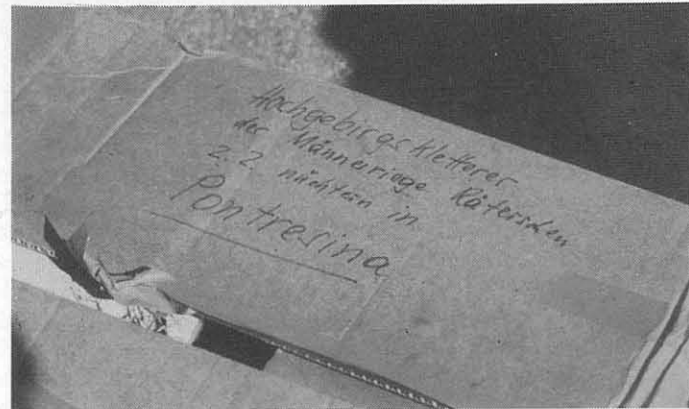 Hochgebirgskletterer
der Männerriege Räterschen
z.Z. nüchtern in
Pontresina